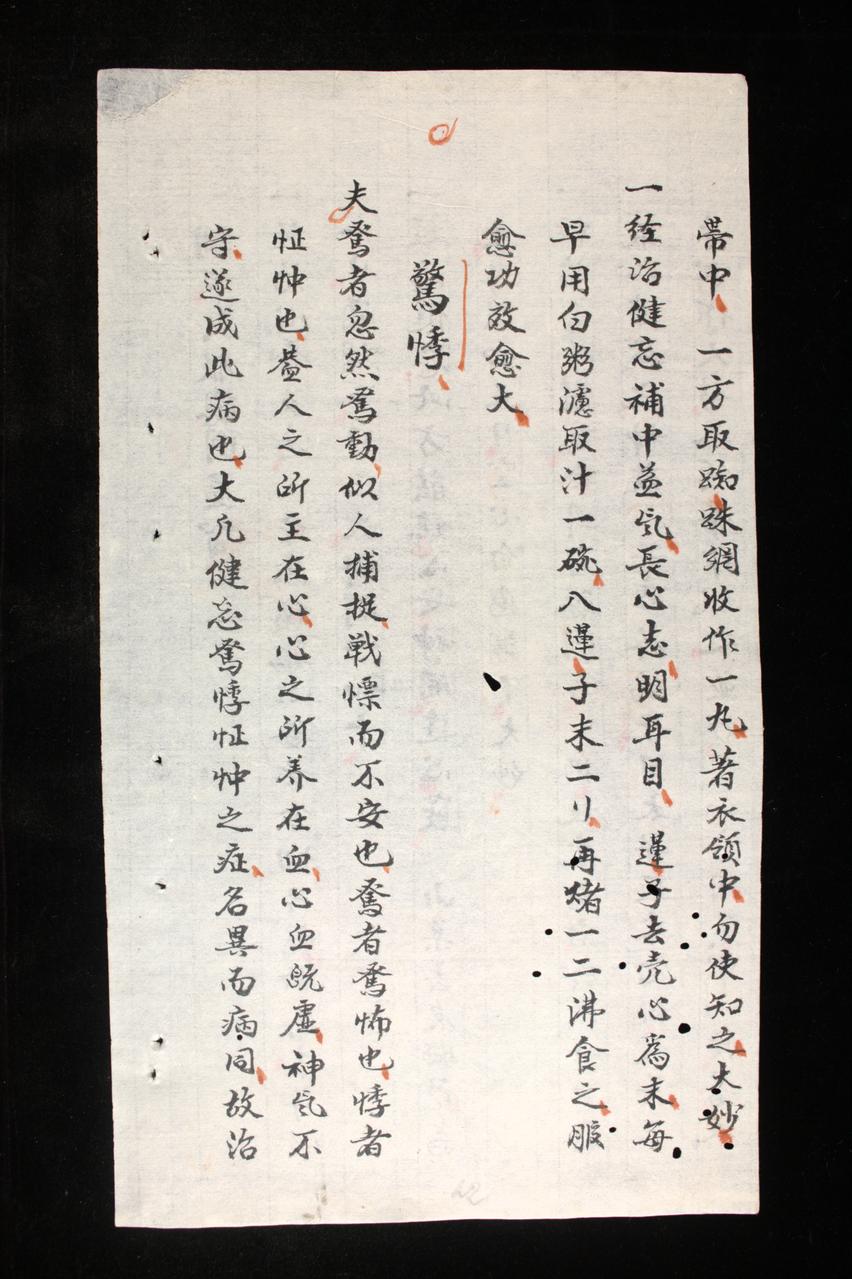 帶中一方取蜘蛛網收作一丸著衣領中勿使知之大妙
一経治健忘補中益气長心志明耳目蓮子去壳心為末每
早用白粥濾取汁一硫入蓮子末二刂再煑一二沸食之服
愈功效愈大
驚悸
夫驚者忽然驚動似人捕捉戦慓而不安也驚者驚怖也悸者
怔忡也葢人之所主在心心之所养在血心血既虛神气不
守遂成此病也大凡健忘驚悸怔忡之症名異而病同故治